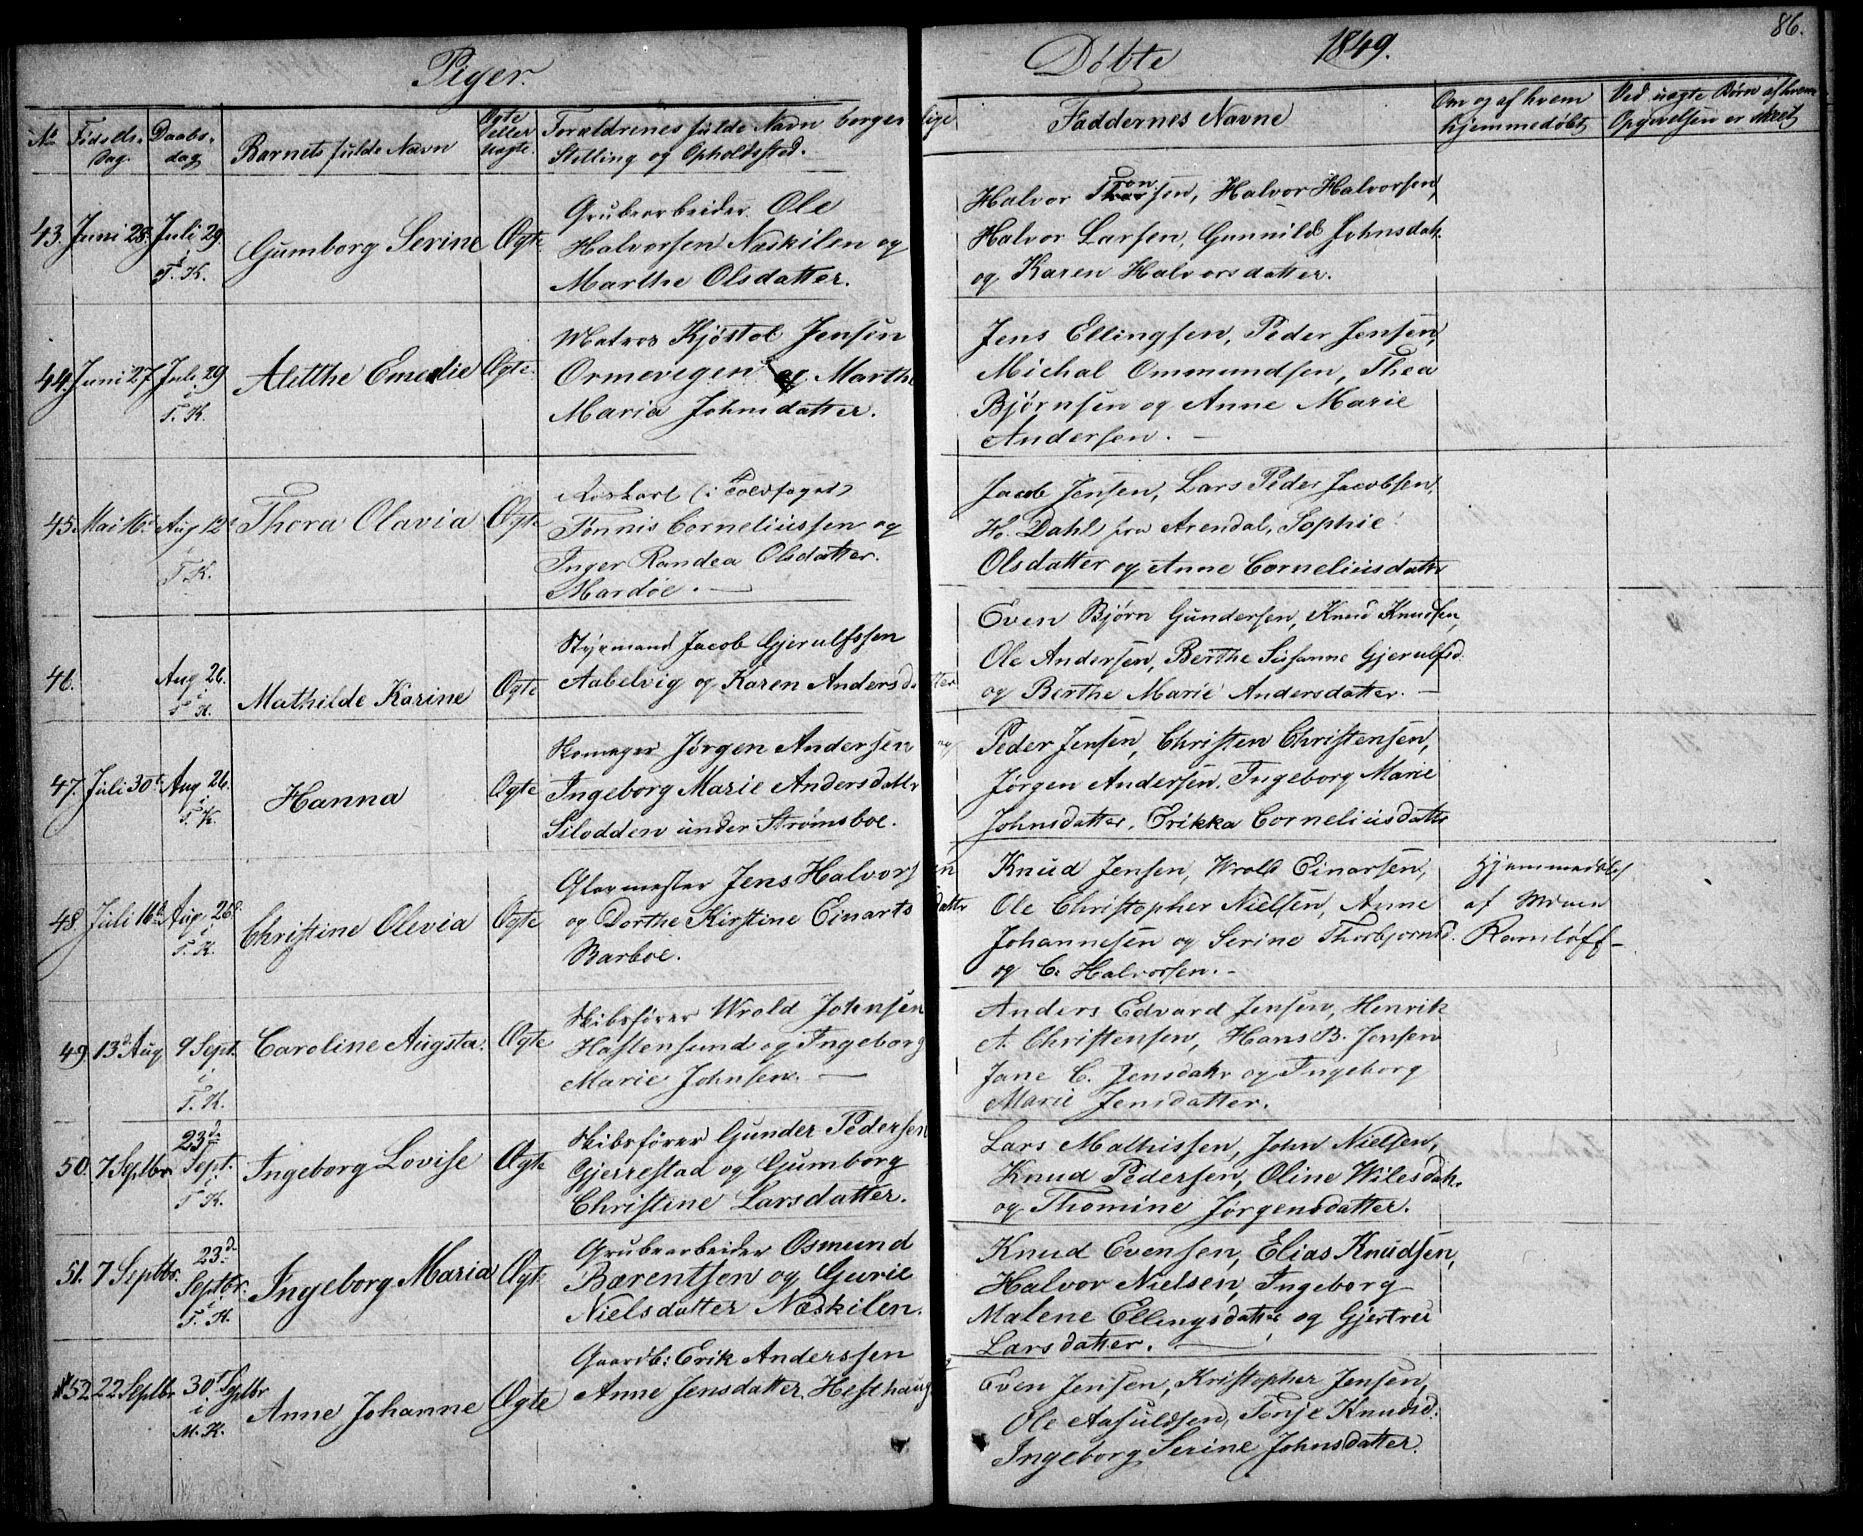 Piger.
Døbte 1849.
86.
No
Fødsels-
dag.
Daabs-
dag
Barnets fulde Navn
Ægte
eller
uægte.
Forældrenes fulde Navn borgerlige
Stilling og Opholdssted.
Faddernes Navne
Om og af hvem
hjemmedøbt
Ved uægte Børn af hvem
Opgivelsen er skeet
43. Juni 28. Juli 29
i
T. K.
Gumborg Serine
Ægte
Grubearbeider Ole
Halvorsen Næskilen og
Marthe Olsdatter.
Halvor Tronsen, Halvor Halvorsen,
Halvor Larsen, Gunnild Johnsdatr.
og Karen Halvorsdatter.
44. Juni 27 Juli 29
i
T. K.
Alitthe Emelie
Ægte.
Matros Kjøstol Jensen
Ormevigen og Marthe
Maria Johnsdatter.
Jens Ellingsen, Peder Jensen,
Michal Ommundsen, Thea
Bjørnsen og Anne Marie
Andersen. —
45. Mai 16. Aug 12
i
T. K.
Thora Olavia
Ægte
Roskarl (i Toldfaget)
Tønnis Corneliussen og
Inger Randea Olsdatter.
Mardøe. —
Jacob Jensen, Lars Peder Jacobsen,
H. Dahl fra Arendal, Sophie
Olsdatter og Anne Corneliusdattr
46. Aug 26.
i
T. K.
Mathilde Karine
Ægte
Styrmand Jacob Gjerulfssen
Aabelvig og Karen Andersdatter
Even Bjørn Gundersen, Knud Knudsen,
Ole Andersen, Berthe Susanne Gjerulfsd.
og Berthe Marie Andersdatter. —
47. Juli 30te Aug 26.
i
T. K.
Hanna
Ægte
Skomager Jørgen Andersen og
Ingeborg Marie Andersdattr
Silodden under Strømsboe.
Peder Jensen, Christen Christensen,
Jørgen Andersen, Ingeborg Marie
Johnsdatter, Erikka Corneliusdattr
48. Juli 16de Aug. 26d.
i
T. K.
Christine Olevia
Ægte
Glarmester Jens Halvorsen
og Dorthe Kirstine Einartsdattr
Barboe.
Knud Jensen, Wrold Einarsen,
Ole Christopher Nielsen, Anne
Johannesen og Serine Thorbjørnsd.
og C. Halvorsen. -
Hjemmedøbt
af
Ramløff-
49. 13d Aug 9 Sept.
i
T. K.
Caroline Augsta.
Ægte
Skibsfører Wrold Johnsen
Hastensund og Ingeborg
Marie Johnsen. —
Anders Edvard Jensen, Henrik
A. Christensen, Hans B. Jensen
Jane C. Jensdatr og Ingeborg
Marie Jensdatter.
50. 7 Septbr 23d
Sept.
i
T. K.
Ingeborg Lovise
Ægte
Skibsfører Gunder Pedersen
Gjerrestad og Gumborg
Christine Larsdatter.
Lars Mathissen, John Nielsen,
Knud Pedersen, Oline Wilesdatr.
og Thomine Jørgensdatter.
51. 7 Septbr. 23d
Septbr.
i
T. K.
Ingeborg Maria
Ægte
Grubearbeider Osmund
Bærentsen og Gurie
Nielsdatter Næskilen.
Knud Evensen, Elias Knudsen,
Halvor Nielsen, Ingeborg
Malene Ellingsdatter og Gjertrud
Larsdatter. —
52. 22 Septbr 30te Septbr
i
M. K.
Anne Johanne
Ægte
Gaardb: Erik Anderssen
Anne Jensdatter Hesthaug
Even Jensen, Kristopher Jensen,
Ole Aasuldsen, Tonje Knudsd:
Ingeborg Serine Johnsdatter.